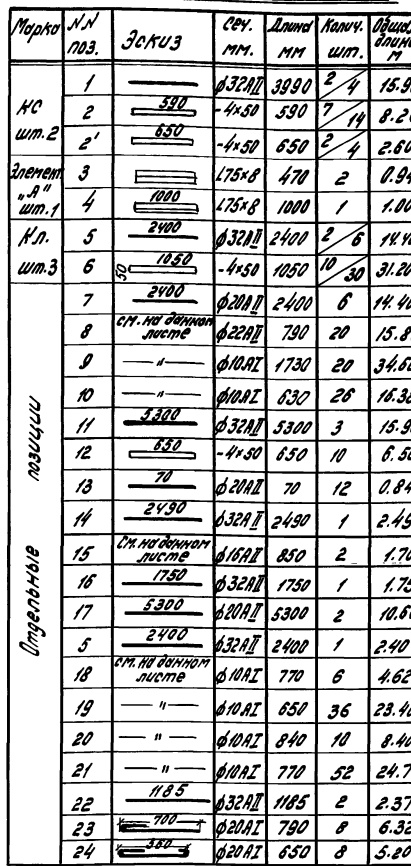 Марка NN поз. Эскиз Сеч. мм. Длина мм Колич. шт. Общая длина м
КС шт.2
1 ø32АII 3990 2/4 15.9
2 590 -4×50 590 7/14 8.2
2' 650 -4×50 650 2/4 2.60
Элемент "А" шт.1
3 L75×8 470 2 0.94
4 1000 L75×8 1000 1 1.00
Кл. шт.3
5 2400 ø32АII 2400 2/6 14.4
6 50 1050 -4×50 1050 10/30 31.20
Отдельные позиции
7 2400 ø20АII 2400 6 14.4
8 см. на данном листе ø22АII 790 20 15.8
9 —"— ø10АI 1730 20 34.6
10 —"— ø10АI 630 26 16.3
11 5300 ø32АII 5300 3 15.9
12 650 -4×50 650 10 6.50
13 70 ø20АII 70 12 0.84
14 2490 ø32АII 2490 1 2.49
15 См. на данном листе ø16АII 850 2 1.70
16 1750 ø32АII 1750 1 1.75
17 5300 ø20АII 5300 2 10.6
5 2400 ø32АII 2400 1 2.40
18 см. на данном листе ø10АI 770 6 4.62
19 —"— ø10АI 650 36 23.4
20 —"— ø10АI 840 10 8.40
21 —"— ø10АI 770 52 24.7
22 1185 ø32АII 1185 2 2.37
23 700 ø20АI 790 8 6.32
24 560 ø20АI 650 8 5.20